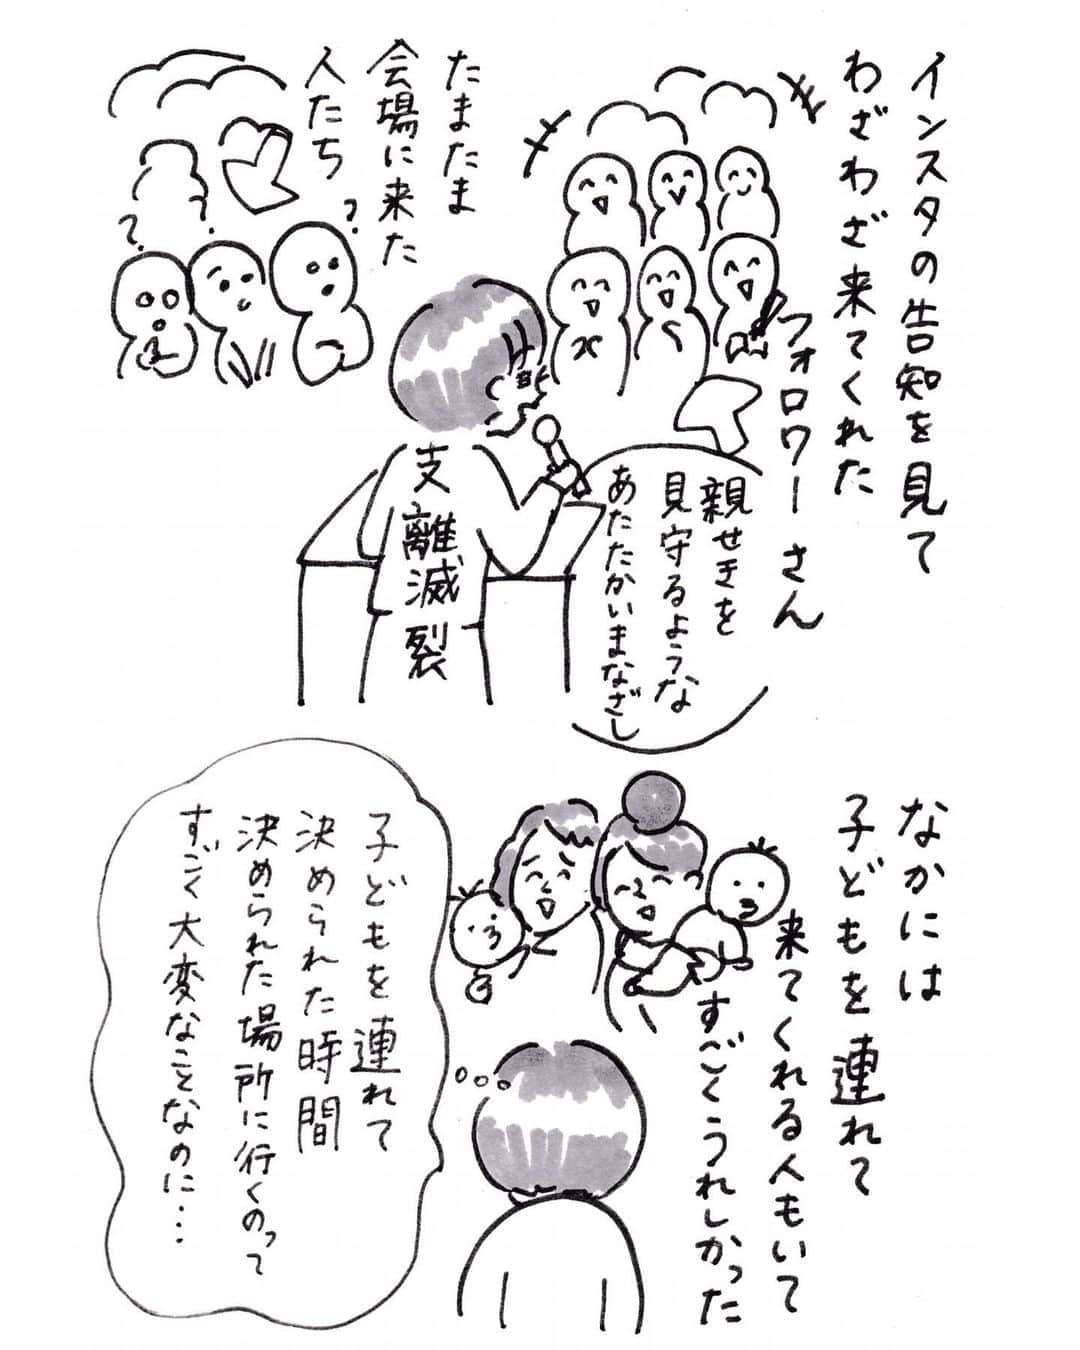 インスタの告知を見て
わざわざ来てくれた
フォロワーさん
たまたま
会場に来た
人たち
?
?
?
支離滅裂
親せきを
見守るような
あたたかいまなざし
なかには
子どもを連れて
来てくれる人もいて
すごくうれしかった
子どもを連れて
決められた時間
決められた場所に行くのって
すごく大変なことなのに・・・